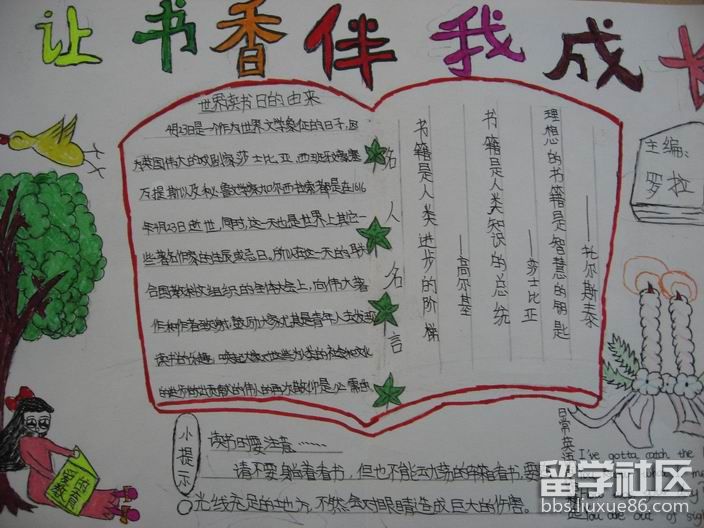 让书香伴我成长
世界读书日的由来
4月23日是一个作为世界文学象征的日子,因
为英国伟大的戏剧家莎士比亚,西班牙
都是在1616
年4月23日逝世,同时,这一天也是世界上其它一
些著名作家的生辰或忌日,所以在这一天的联
合国教科文组织的全体大会上,向伟大著
作和作者致敬,鼓励大家尤其是青年人去发现
读书的乐趣,
名人名言
书籍是人类进步的阶梯
——高尔基
书籍是人类知识的总统
——莎士比亚
理想的书籍是智慧的钥匙
——托尔斯泰
主编:
罗拉
爱的教育
小提示
读书时要注意……
请不要躺着看书,但也不能去
光线充足的地方,不然会对眼睛造成巨大的伤害。
日常英语
I've gotta catch the
You are out of
留学社区
bbs.liuxue86.com